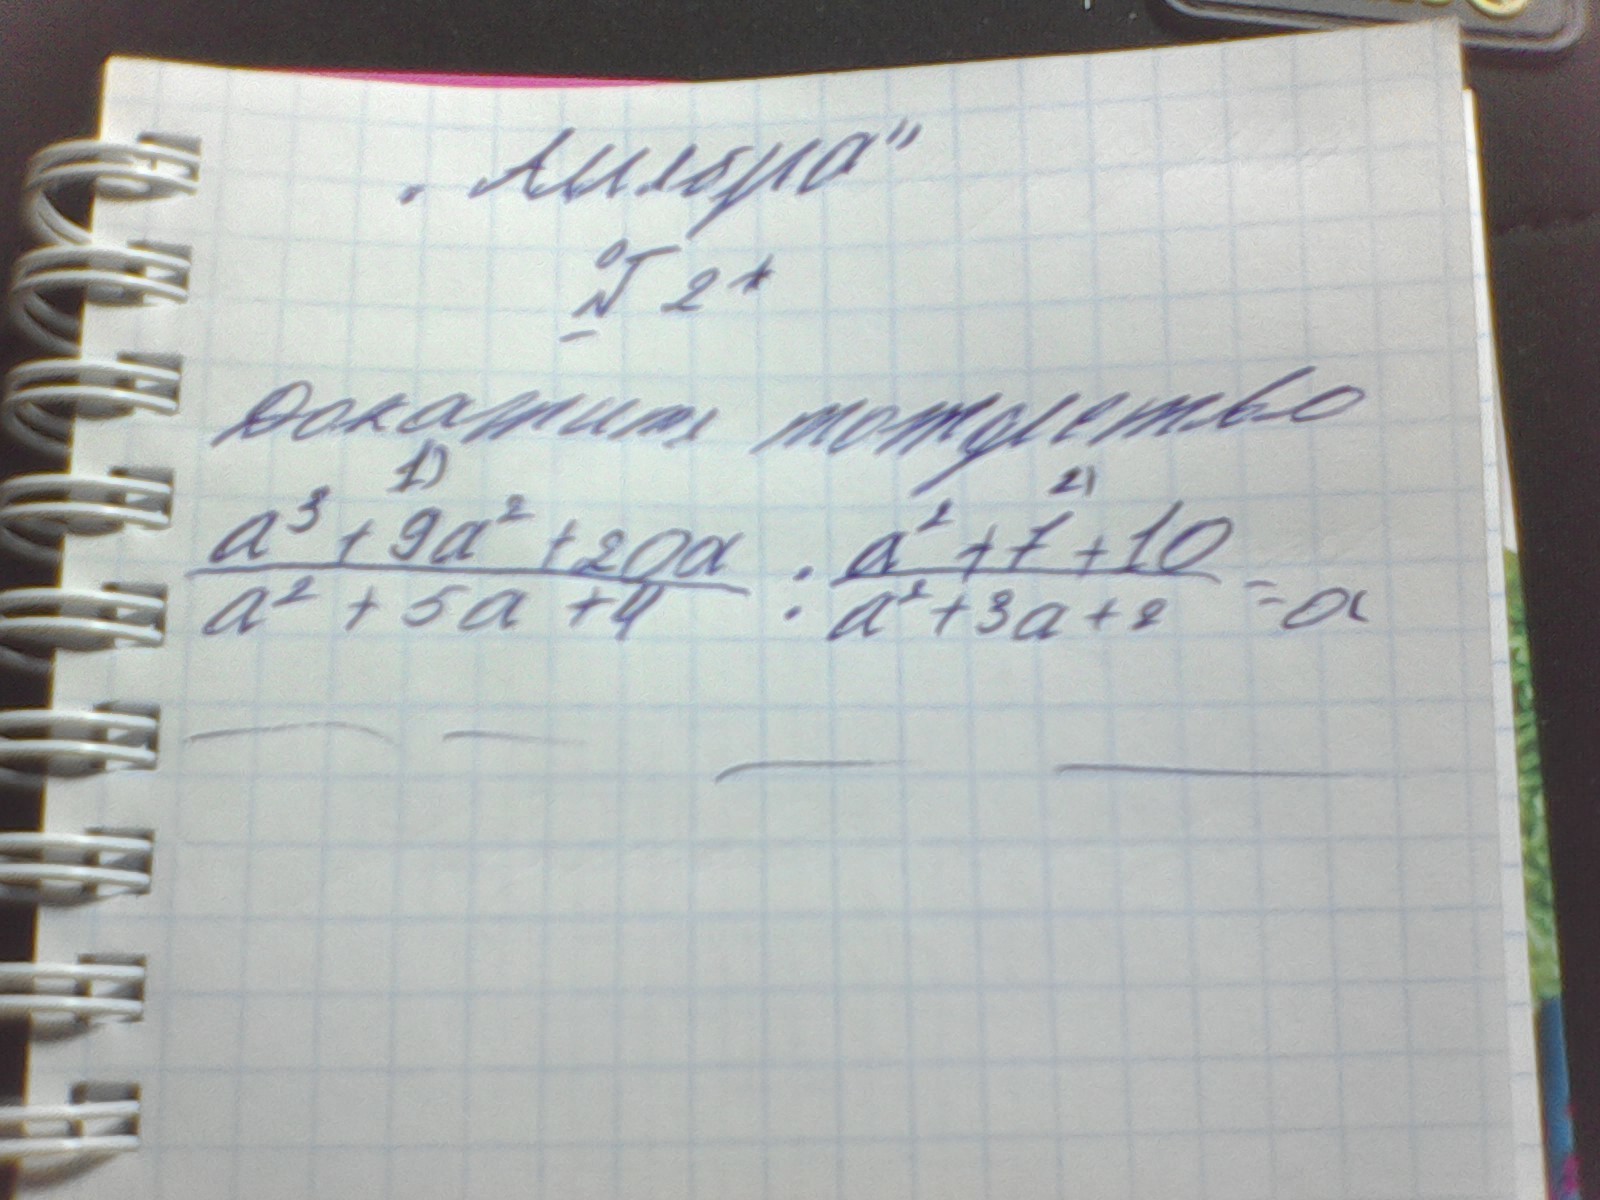 „Алгебра"
№ 2*
Докажите тождество
1) 2)
a³ + 9a² + 20a : a² + 7 + 10
a² + 5a + 4 a² + 3a + 2 = a